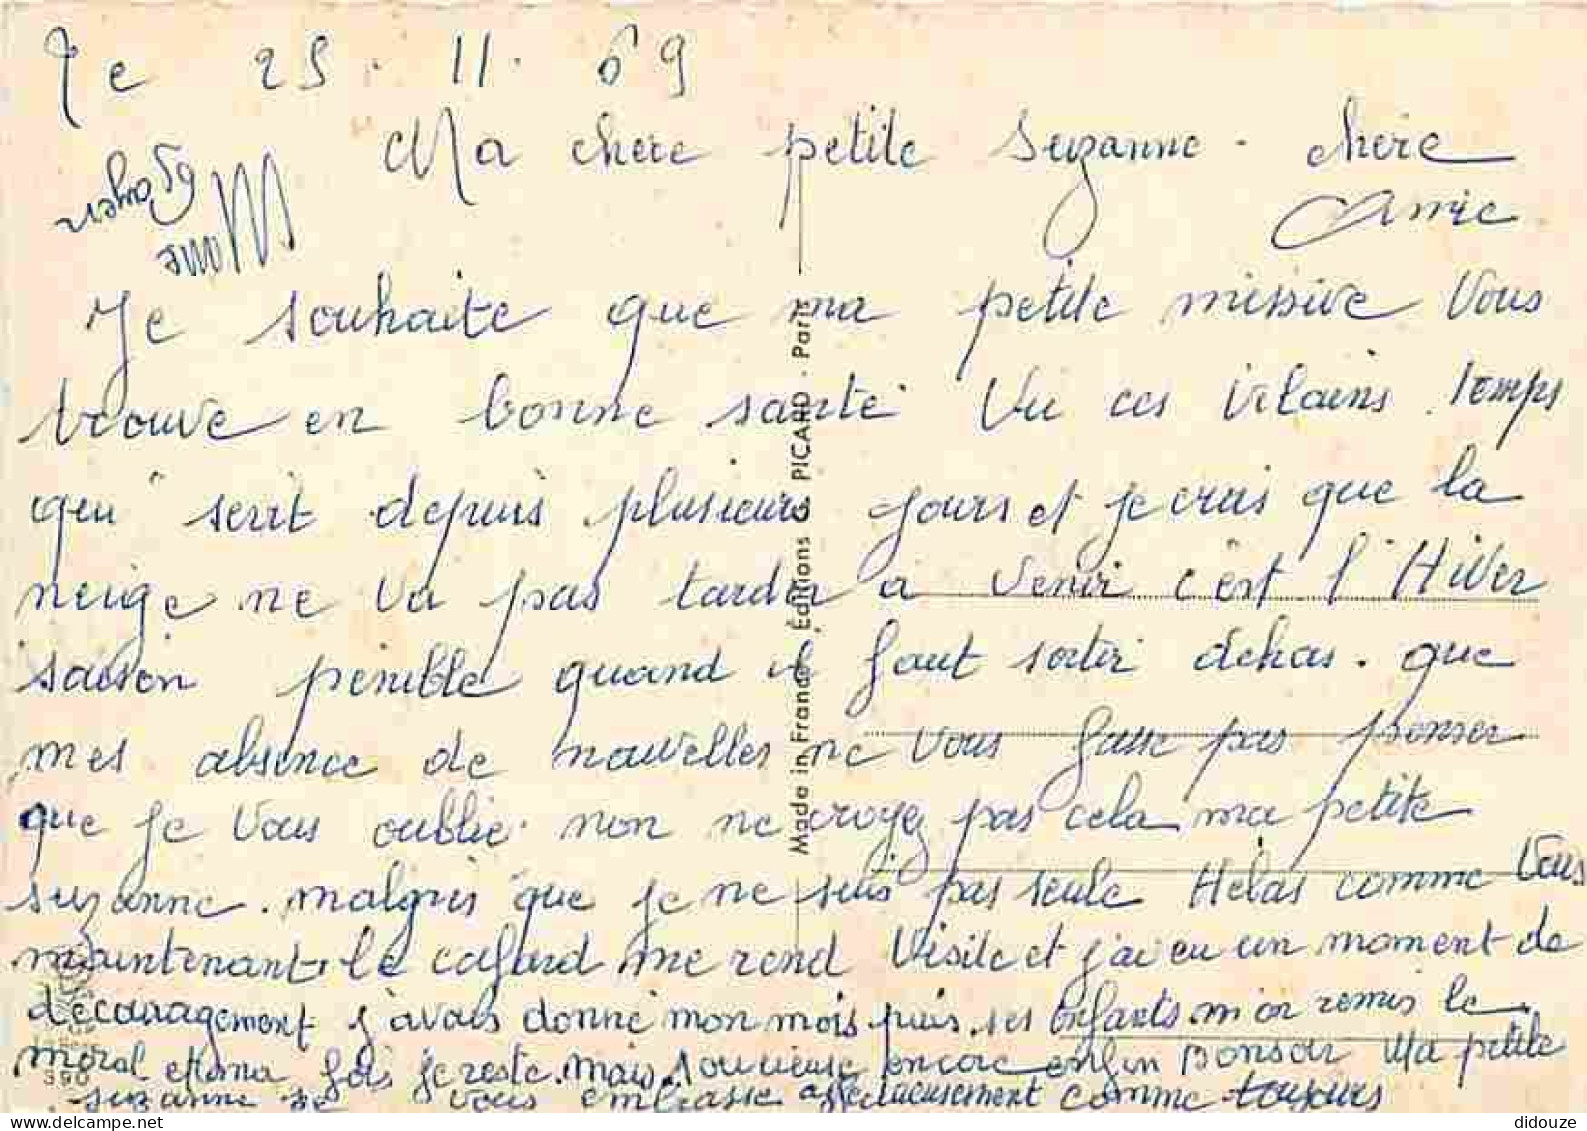 Le 25. 11. 69
Ma chere petite Suzanne. chere
Amie
Mme
Je souhaite que ma petite missive Vous
trouve en bonne santé Vu ces vilains temps
qui sevit depuis plusieurs jours et je crois que la
neige ne va pas tarder a venir c'est l'Hiver
saison penible quand il faut sortir dehors. que
mes absence de nouvelles ne Vous fasse pas penser
que je Vous oublie. non ne croyez pas cela ma petite
suzanne. malgres que je ne suis pas seule Helas comme Vous
maintenant le cafard me rend Visite et j'ai eu un moment de
decouragement j'avais donné mon mois puis ses enfants m'on remis le
moral et ma foi je reste. mais soucieuse encore enfin Bonsoir Ma petite
suzanne je vous embrasse affectueusement comme toujours
Made in France Éditions PICARD - Paris
390
didouze